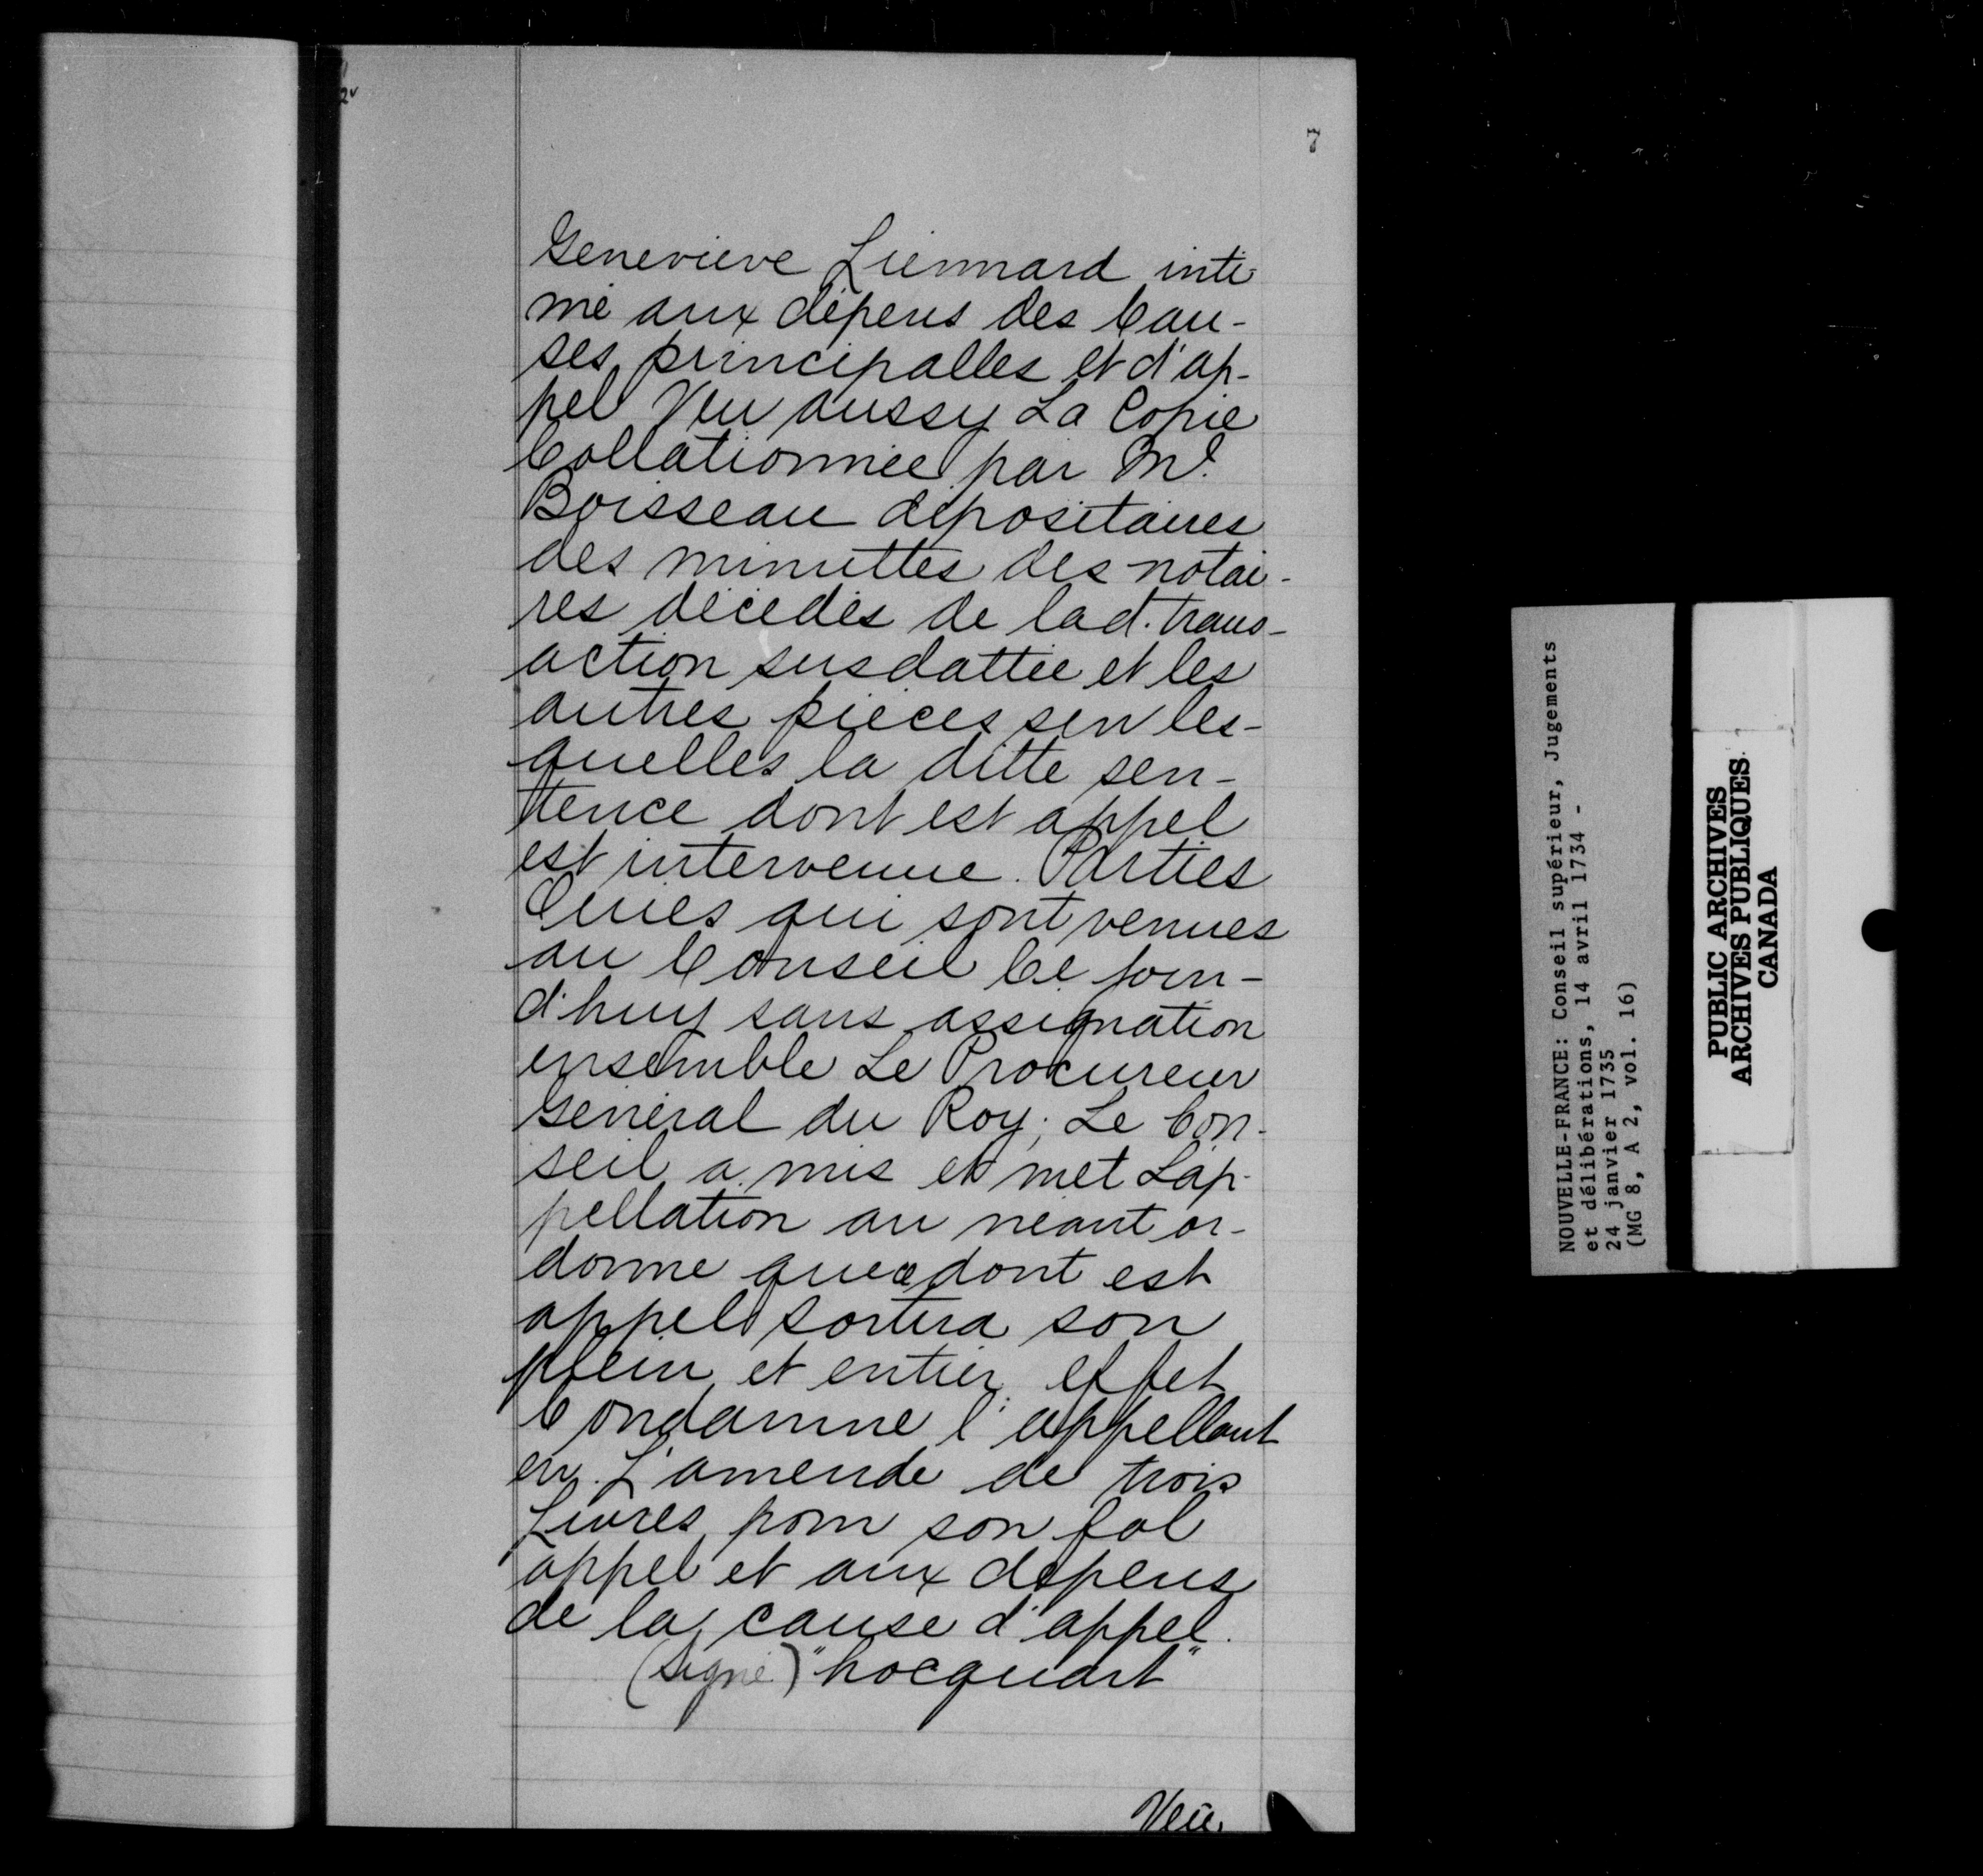 2v
7
Genevieve Liennard inti-
mé aux dépens des Cau-
ses principalles et d'ap-
pel Veu aussy La Copie
Collationnée par Me.
Boisseau dépositaires
des minuttes des notai-
res décédés de lad. trans-
action susdattée et les
autres pièces sur les-
quelles la ditte sen-
tence dont est appel
est intervenue. Parties
Ouies qui sont venues
au Conseil Ce jour-
d'huy sans assignation
ensemble Le Procureur
Général du Roy; Le Con-
seil a mis et met L'ap-
pellation au néant or-
donne que ce dont est
appel sortira son
plein et entier effet
Condamne l'appellant
en L'amende de trois
Livres pour son fol
appel et aux dépens
de la cause d'appel.
(Signé) "hocquart"
Veü
NOUVELLE-FRANCE: Conseil supérieur, Jugements
et délibérations, 14 avril 1734 -
24 janvier 1735
(MG 8, A 2, vol. 16)
PUBLIC ARCHIVES
ARCHIVES PUBLIQUES
CANADA